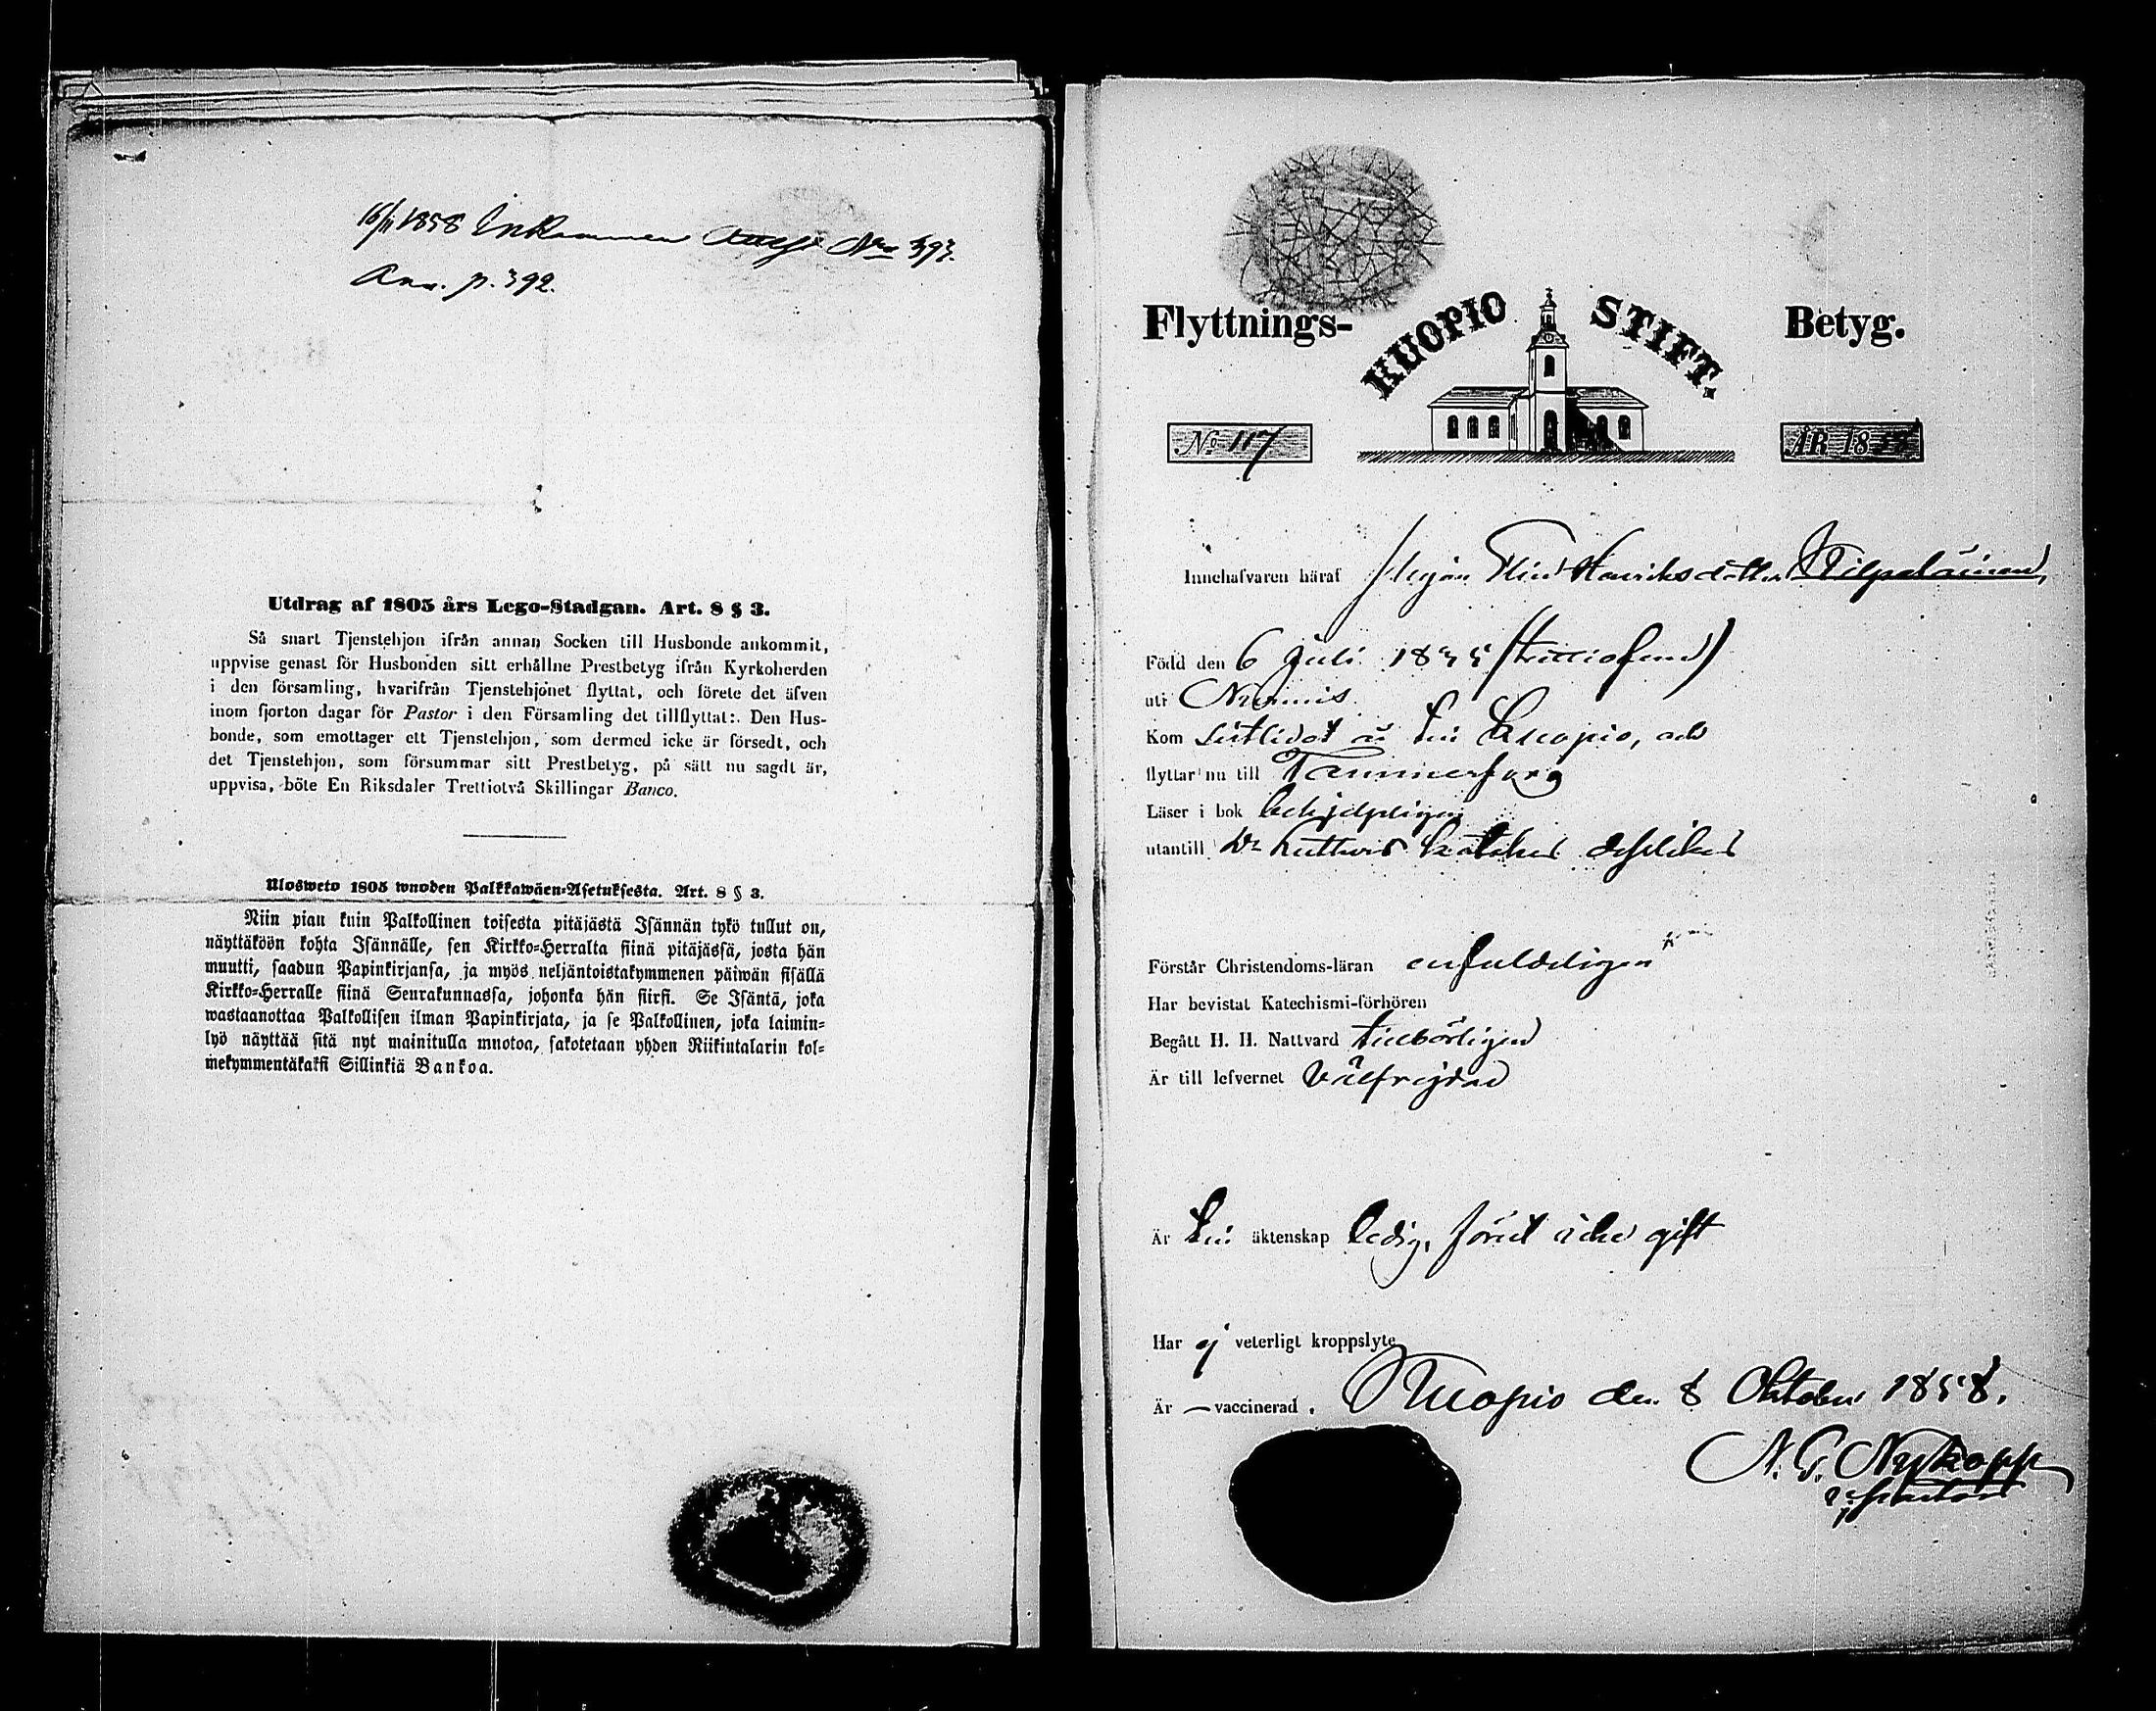 16/11 1858 Inkommen Attest No 393.
Ann. p. 392.
Utdrag af 1805 års Lego-Stadgan. Art. 8 § 3.
Så snart Tjenstehjon ifrån annan Socken till Husbonde ankommit,
uppvise genast för Husbonden sitt erhållne Prestbetyg ifrån Kyrkoherden
i den församling, hvarifrån Tjenstehjonet flyttat, och förete det äfven
inom fjorton dagar för Pastor i den Församling det tillflyttat:. Den Hus-
bonde, som emottager ett Tjenstehjon, som dermed icke är försedt, och
det Tjenstehjon, som försummar sitt Prestbetyg, på sätt nu sagdt är,
uppvisa, böte En Riksdaler Trettiotvå Skillingar Banco.
Ulosweto 1805 wuoden Palkkawäen-Asetuksesta. Art. 8 § 3.
Niin pian kuin Palkollinen toisesta pitäjästä Isännän tykö tullut on,
näyttäköön kohta Isännälle, sen Kirkko-Herralta siinä pitäjässä, josta hän
muutti, saadun Papinkirjansa, ja myös neljäntoistakymmenen päiwän sisällä
Kirkko-Herralle siinä Seurakunnassa, johonka hän siirsi. Se Isäntä, joka
wastaanottaa Palkollisen ilman Papinkirjata, ja se Palkollinen, joka laimin-
lyö näyttää sitä nyt mainitulla muotoa, sakotetaan yhden Riikintalarin kol-
mekymmentäkaksi Sillinkiä Bankoa.
Flyttnings- KUOPIO STIFT. Betyg.
No 117 ÅR 1858
Innehafvaren häraf Pigan Elin Henriksdotter Wilpalainen,
Född den 6 Juli 1835 (trettiofem)
uti Nurmis
Kom sistlidet år till Kuopio, och
flyttar nu till Tammerfors
Läser i bok behjelpligen
utantill Dr Luthers kateches desslikes
Förstår Christendoms-läran enfaldeligen
Har bevistat Katechismi-förhören
Begått H. H. Nattvard tillbörligen
Är till lefvernet välfrejdad
Är till äktenskap ledig, förut icke gift
Har ej veterligt kroppslyte
Är — vaccinerad. Kuopio den 8 Oktober 1858.
A. G. Nykopp